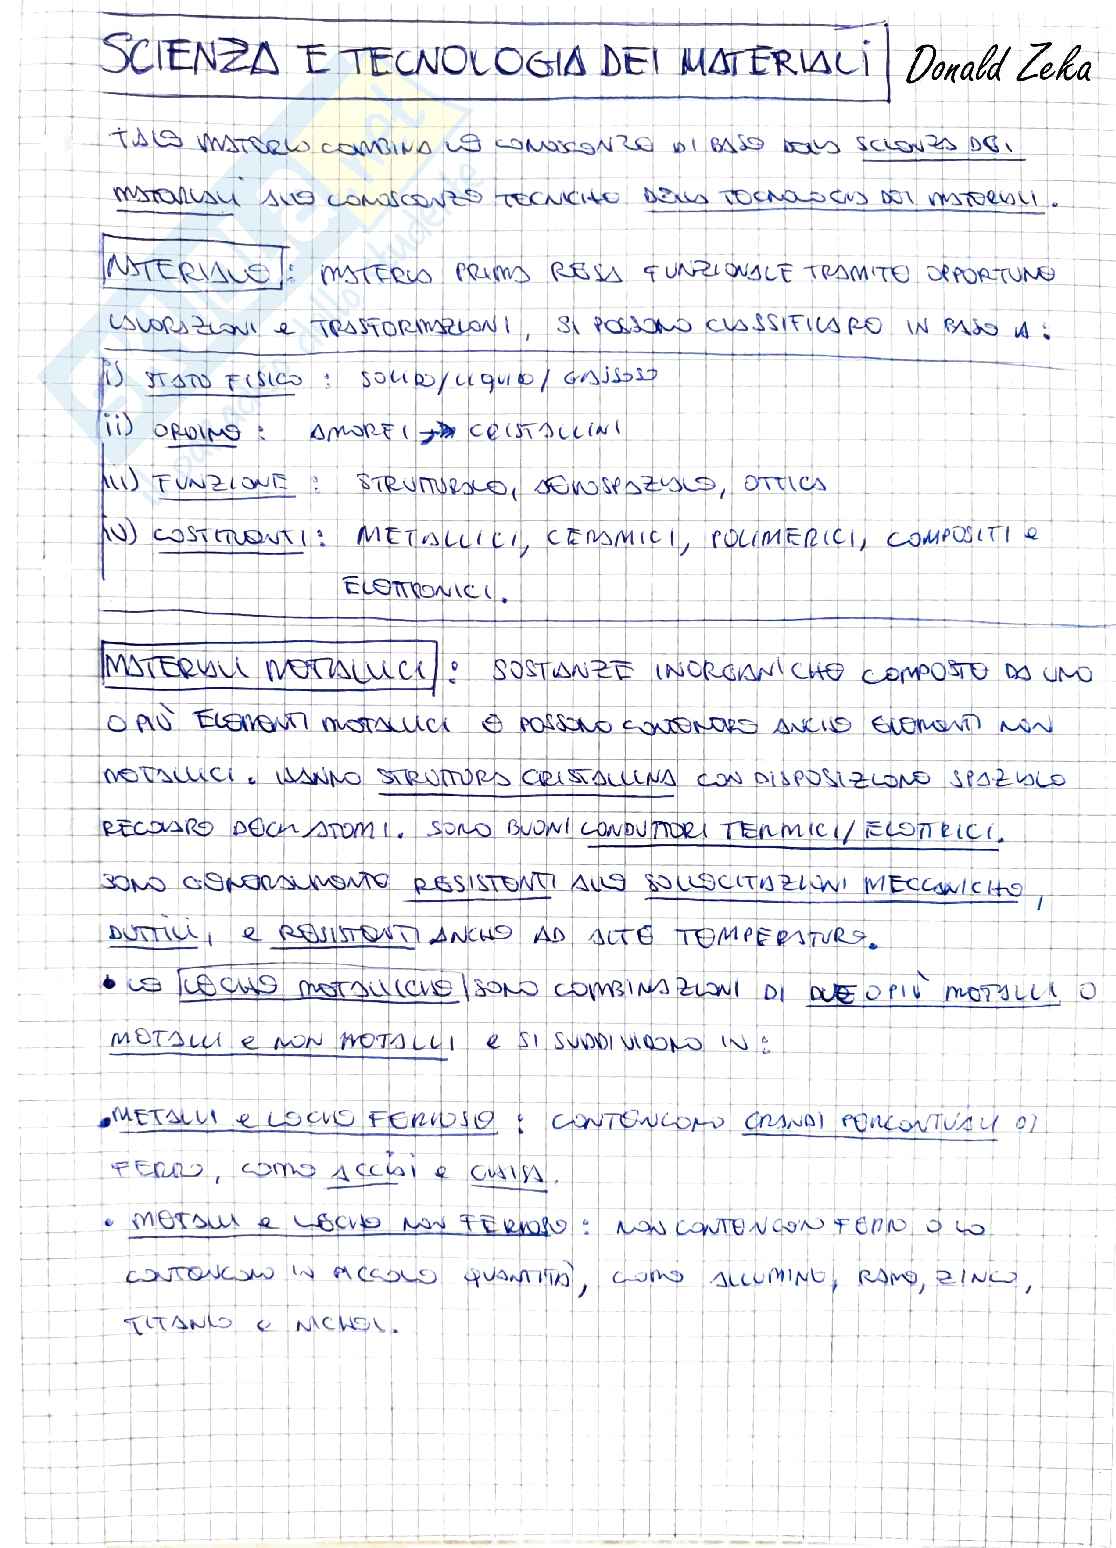 SCIENZA E TECNOLOGIA DEI MATERIALI Donald Zeka
TALE MATERIA COMBINA LE CONOSCENZE DI BASE DELLA SCIENZA DEI
MATERIALI ALLE CONOSCENZE TECNICHE DELLA TECNOLOGIA DEI MATERIALI.
MATERIALE: MATERIA PRIMA RESA FUNZIONALE TRAMITE OPPORTUNE
LAVORAZIONI e TRASFORMAZIONI, SI POSSONO CLASSIFICARE IN BASE A:
i) STATO FISICO: SOLIDO/LIQUIDO/GASSOSO
ii) ORDINE: AMORFI → CRISTALLINI
iii) FUNZIONE: STRUTTURALE, AEROSPAZIALE, OTTICA
iv) COSTITUENTI: METALLICI, CERAMICI, POLIMERICI, COMPOSITI e
ELETTRONICI.
MATERIALI METALLICI: SOSTANZE INORGANICHE COMPOSTE DA UNO
O PIÙ ELEMENTI METALLICI E POSSONO CONTENERE ANCHE ELEMENTI NON
METALLICI. HANNO STRUTTURA CRISTALLINA CON DISPOSIZIONE SPAZIALE
REGOLARE DEGLI ATOMI. SONO BUONI CONDUTTORI TERMICI/ELETTRICI.
SONO GENERALMENTE RESISTENTI ALLE SOLLECITAZIONI MECCANICHE,
DUTTILI, e RESISTENTI ANCHE AD ALTE TEMPERATURE.
• LE LEGHE METALLICHE SONO COMBINAZIONI DI DUE O PIÙ METALLI O
METALLI e NON METALLI e SI SUDDIVIDONO IN:
• METALLI e LEGHE FERROSE: CONTENGONO GRANDI PERCENTUALI DI
FERRO, COME ACCIAI e GHISA.
• METALLI e LEGHE NON FERROSE: NON CONTENGON FERRO O LO
CONTENGONO IN PICCOLE QUANTITÀ, COME ALLUMINIO, RAME, ZINCO,
TITANIO e NICHEL.